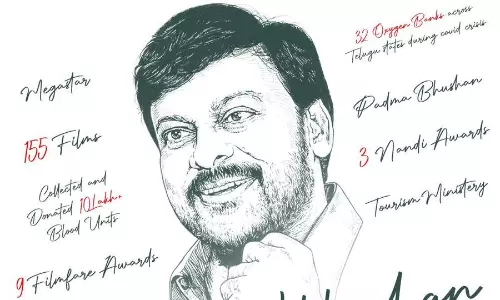 Megastar
155 Films
Collected and
Donated 10Lakh+
Blood Units
9 Filmfare Awards
32 Oxygen Banks across
Telugu states during covid crisis
Padma Bhushan
3 Nandi Awards
Tourism Ministery